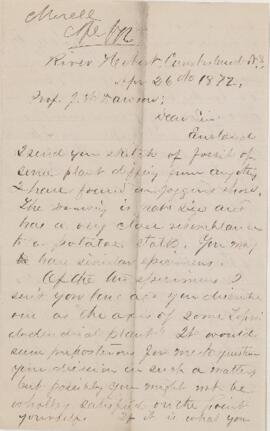 Morell
Ape 1872
River Hebert, Cumberland N.S.
Apr 26th 1872,
Prof. J. W. Dawson,
Dear Sir,
Enclosed
I send you sketch of fossil of
some plant differing from any other
I have found on Joggins shore.
The Drawing is nat. size and
has a very close resemblance
to a potatoe stalk. You may
have similar specimens.
Of the two specimens I
sent you long ago you describe
one as the axis of some Lepi
dodendroid plant. It would
seem preposterous for me to question
your decision in such a matter
but possibly you might not be
wholly satisfied on the point
yourself. If it is what you